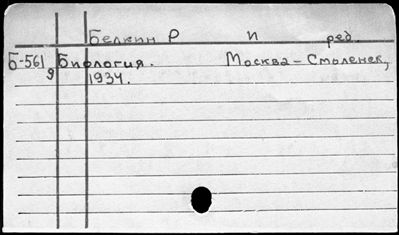 Белкин Р И ред.
Б-561 Биология. Москва-Смоленск,
9 1934.